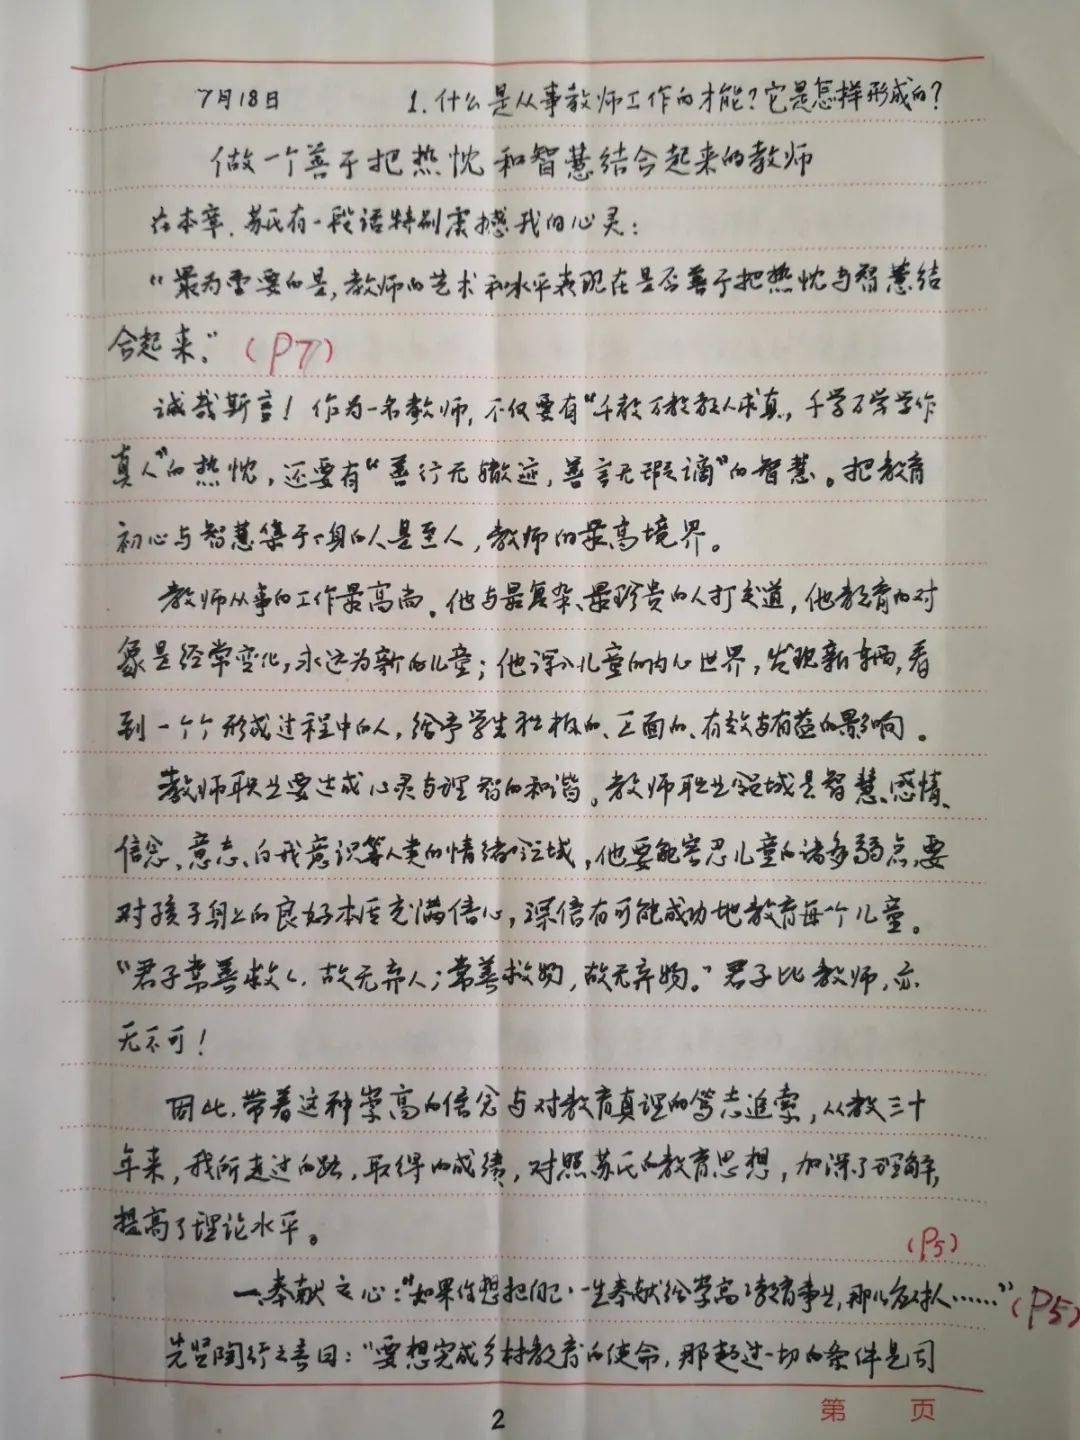 7月18日 1.什么是从事教师工作的才能?它是怎样形成的?
做一个善于把热忱和智慧结合起来的教师
在本章,苏氏有一段话特别震撼我的心灵:
“最为重要的是,教师的艺术和水平表现在是否善于把热忱与智慧结
合起来.”(P7)
诚哉斯言!作为一名教师,不仅要有“千教万教教人求真,千学万学学作
真人”的热忱,还要有“善行无辙迹,善言无瑕谪”的智慧。把教育
初心与智慧集于一身的人是至人,教师的最高境界。
教师从事的工作最高尚。他与最复杂、最珍贵的人打交道,他教育的对
象是经常变化,永远为新的儿童;他深入儿童的内心世界,发现新东西,看
到一个个形成过程中的人,给予学生积极的、正面的、有效与有益的影响。
教师职业要达成心灵与理智的和谐。教师职业领域是智慧、感情、
信念、意志、自我意识等人类的情绪的领域,他要能容忍儿童的诸多弱点,要
对孩子身上的良好本质充满信心,深信有可能成功地教育每个儿童。
“君子常善救人,故无弃人;常善救物,故无弃物。”君子比教师,亦
无不可!
因此,带着这种崇高的信念与对教育真理的笃志追索,从教三十
年来,我所走过的路,取得的成绩,对照苏氏的教育思想,加深了理解,
提高了理论水平。
(P5)
一、奉献之心:“如果你想把自己一生奉献给崇高的教育事业,那么应对人……”(P5)
先贤陶行之有曰:“要想完成乡村教育的使命,那超过一切的条件是同
2
第 页